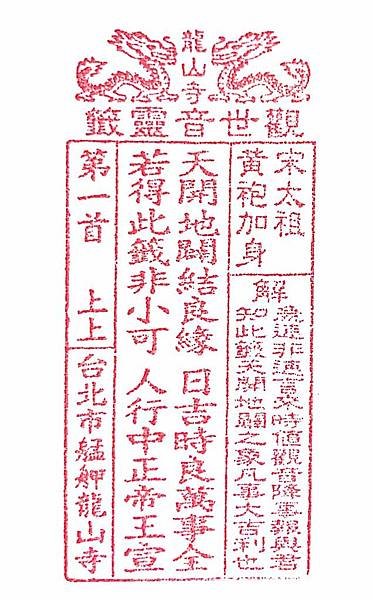 龍山寺
觀世音靈籤
宋太祖
黃袍加身
解
速非速言未時值觀音降報與君
知此籤天開地闢之象凡事大吉利也
天開地闢結良緣 日吉時良萬事全
若得此籤非小可 人行中正帝王宣
第一首 上上
台北市艋舺龍山寺